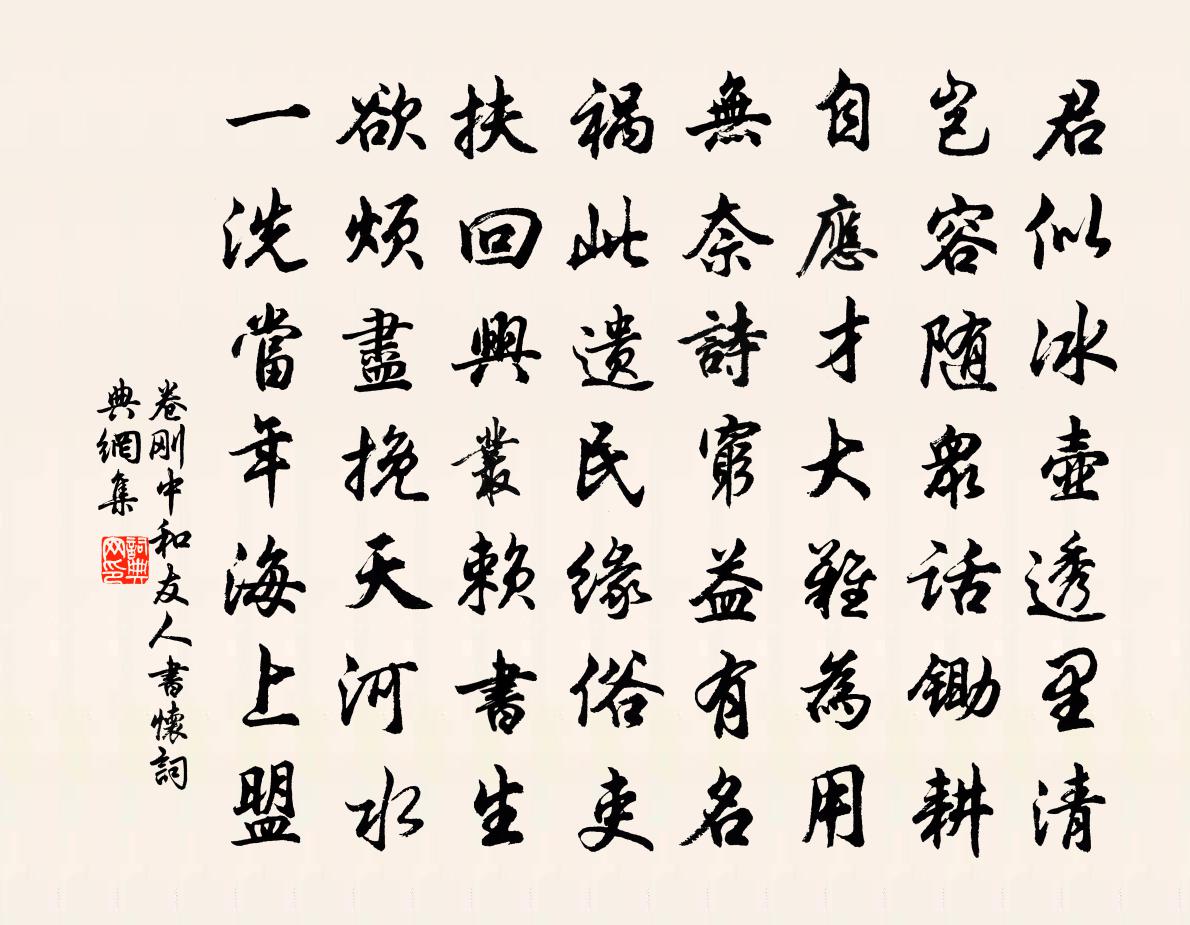 君似冰壺透里清
豈容随眾話鋤耕
自應才大難為用
無奈詩窮益有名
禍此遺民緣俗吏
扶回興叢賴書生
欲煩盡挽天河水
一洗當年海上盟
卷剛中和友人書懷詞
典網集
詞典
网印